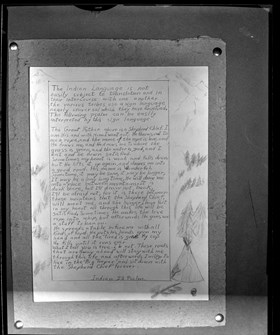 The Indian Language is not
easily subject to translation and in
their intercourse with one another
the various tribes use a sign language,
The following psalm can be easily
interpreted by the sign language
The Great Father above is a Shepherd Chief. I
am His and with Him I want not. He throws out to
me a rope, and the name of the rope is love, and
He draws me, and draws me, to where the
grass is green and the water
and I
Sometimes my heart is weak and falls down,
but He lifts it up again and draws me into
a good road. His name is Wonderful.
Sometime, it may be soon, it may be longer,
it may be a long, long time, He will draw me
into a place between mountains. It is
dark there, but I'll draw back not.
I'll be afraid not, for it is there between
these mountains that the Shepherd Chief
will meet me, and the hunger I have felt
in my heart all through this life will be
satisfied. Sometimes He makes the love
rope into a whip, but afterwards He gives me
a staff to lean on.
He spreads a table before me with all
kinds of food. He puts his hands upon my
head, and all the "tired" is gone. My cup
He fills, till it runs over.
What I tell you is true, I lie not. These roads
that are away ahead will stay with me
through this life, and afterwards I will go to
live in the "Big Tepee" and sit down with
the Shepherd Chief forever.
Indian 23 Psalm